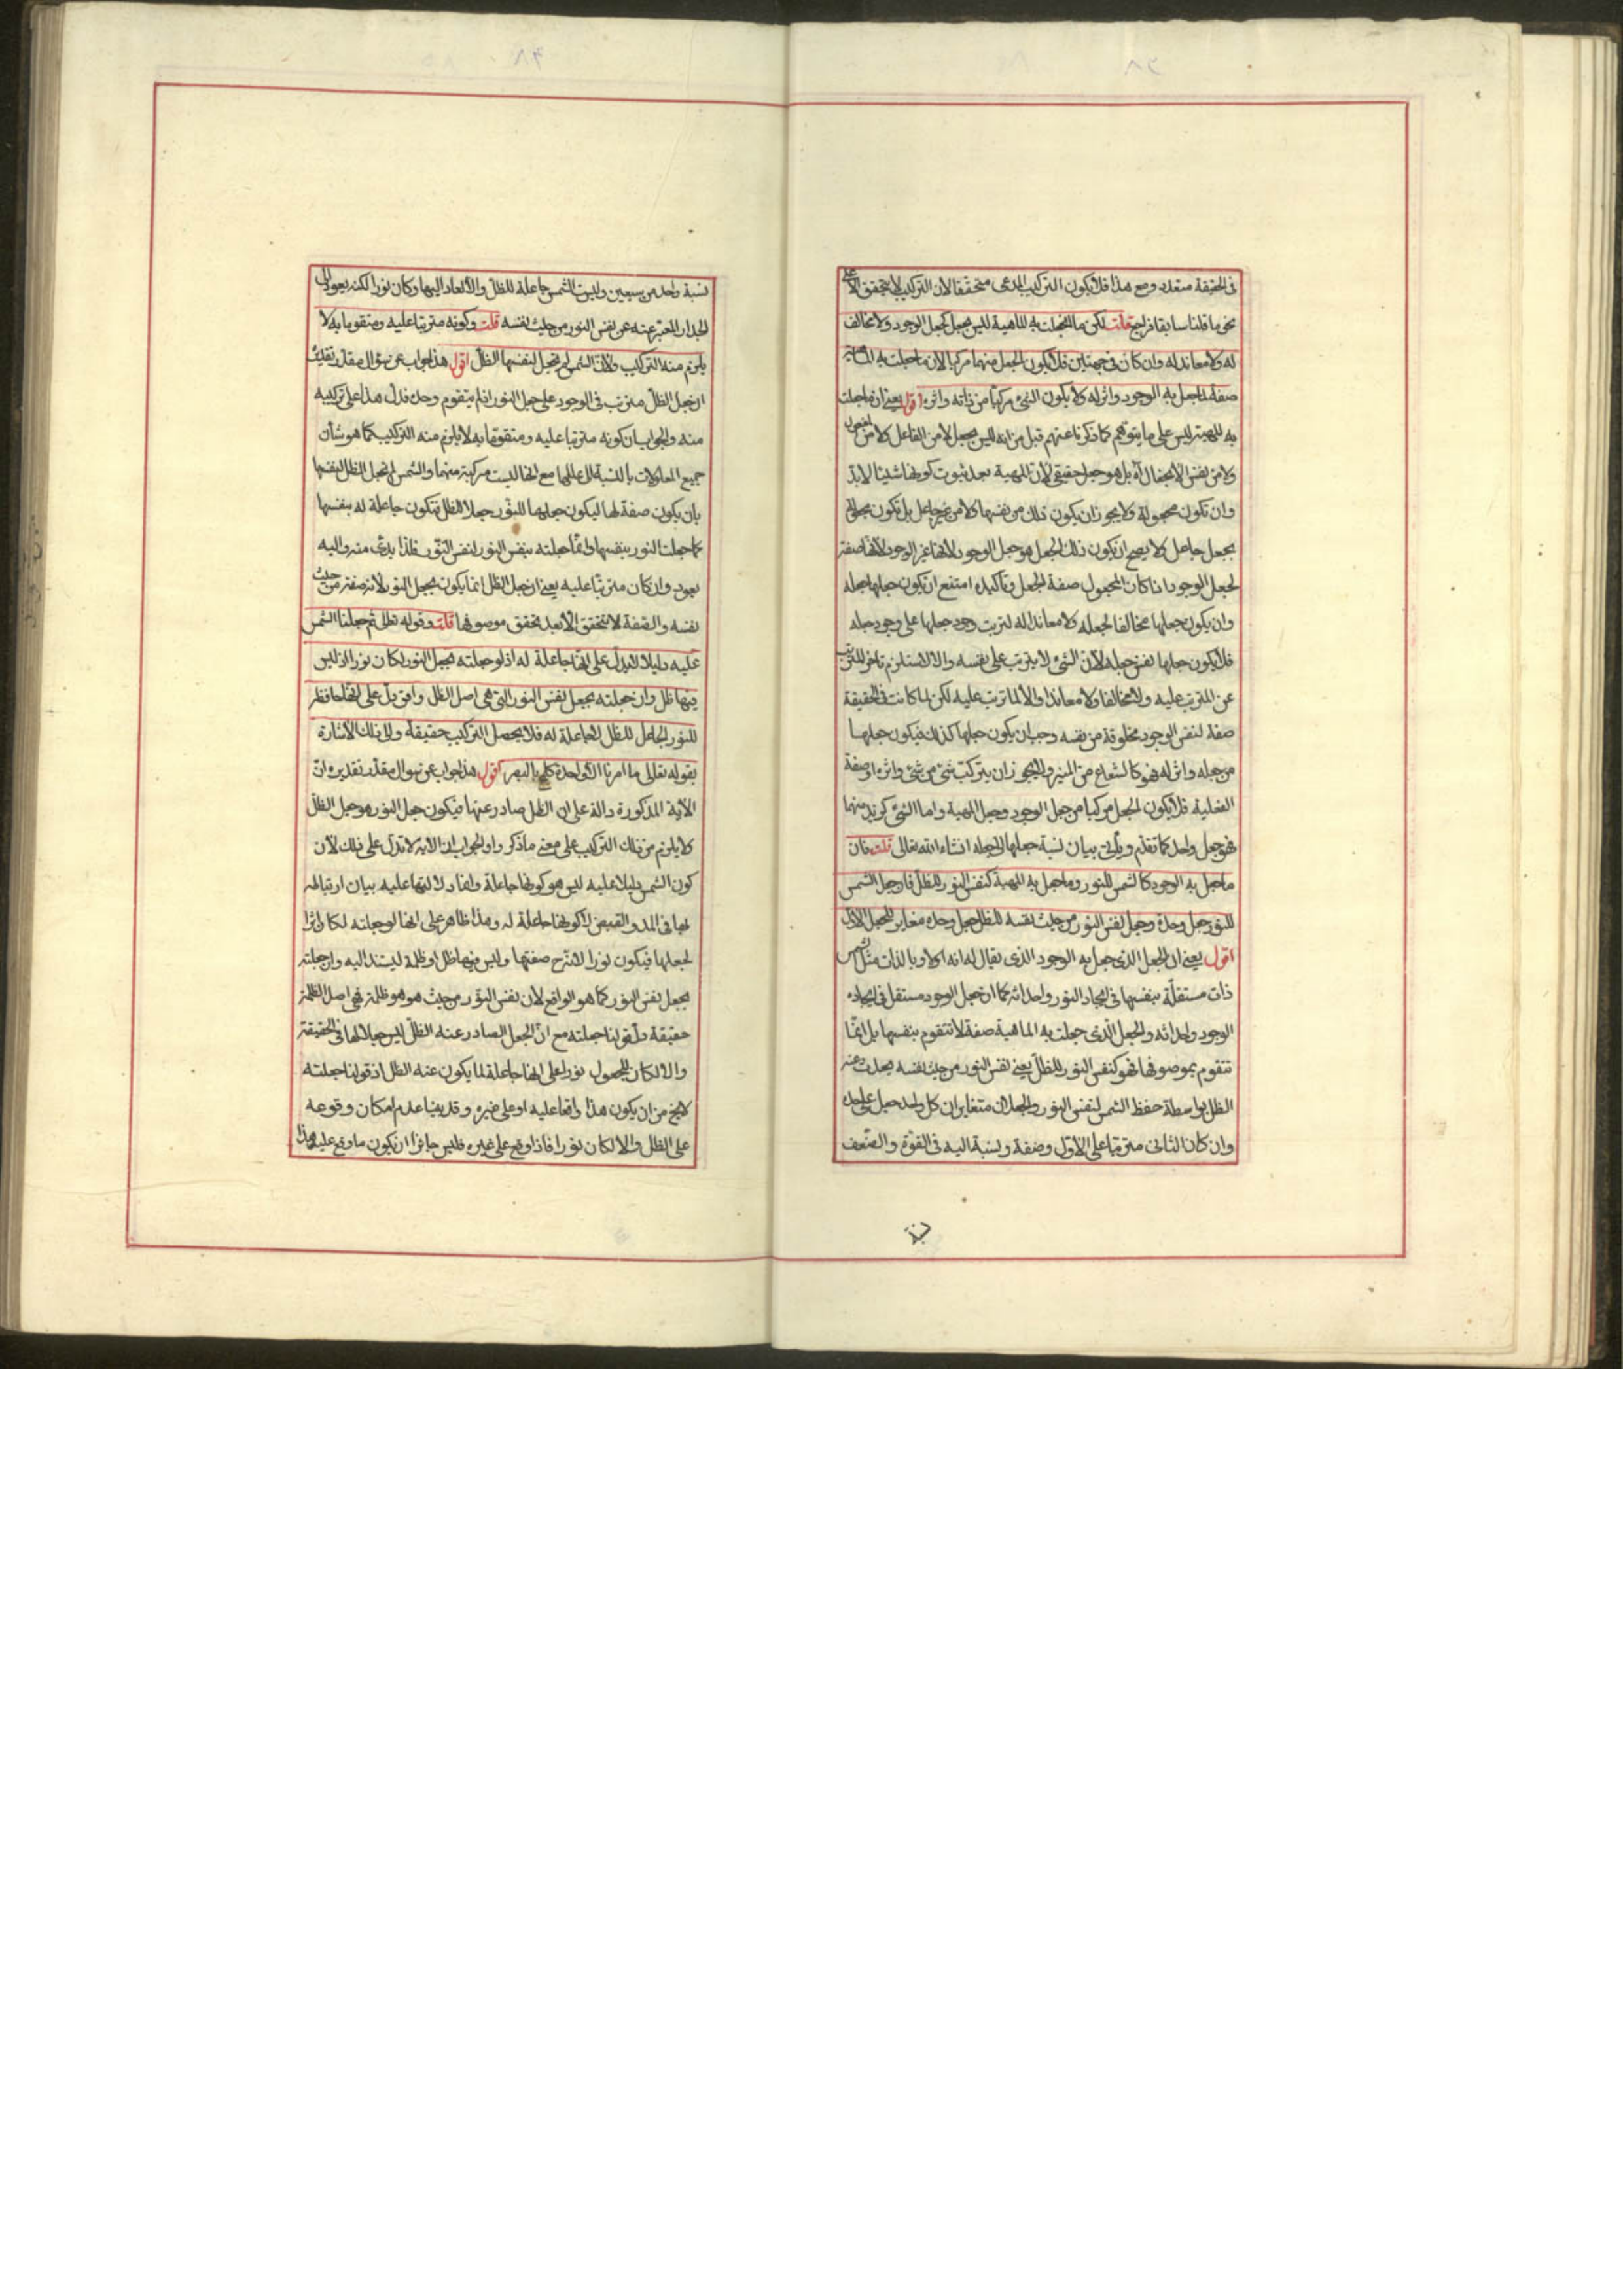 في الحقيقة متعدد ومع هذا فلا يكون التركيب المدعى متحققا لان التركيب لا يتحقق الا على
نحو ما قلنا سابقا فراجع قلت لكن ما انجعلت به الماهية ليس بجعل كجعل الوجود ولا مخالف
له ولا معاند له وان كان في جهتين فلا يكون الجعل منهما مركبا لان ما جعلت به الماهية
صفة لما جعل به الوجود واثر له ولا يكون الشئ مركبا من ذاته واثره اقول يعني ان ما جعلت
به المهية ليس على ما يتوهم كما ذكرنا عنهم قبل من انه ليس بجعل لا من الفاعل ولا من المفعول
ولا من نفس الانجعال اه بل هو جعل حقيقي لان المهية بعد ثبوت كونها شيئا لا بد
وان تكون مجعولة ولا يجوز ان يكون ذلك من نفسها ولا من غير جاعل بل تكون مجعولة
بجعل جاعل ولا يصح ان يكون ذلك الجعل هو جعل الوجود لانها غير الوجود لانها صفة
لجعل الوجود اذا كان المجعول صفة الجعل وتأكيده امتنع ان يكون جعلها جعله
وان يكون جعلها مخالفا لجعله ولا معاندا له لترتب وجود جعلها على وجود جعله
فلا يكون جعلها نفس جعله لان الشئ لا يترتب على نفسه والا لاستلزم تاخر المترتب
عن المترتب عليه ولا مخالفا ولا معاندا والا لما ترتب عليه لكن لما كانت في الحقيقة
صفة لنفس الوجود مخلوقة من نفسه وجب ان يكون جعلها كذلك فيكون جعلها
من جعله واثر له فهو كالشعاع من المنير ولا يجوز ان يتركب شئ من شئ واثره او صفة
الفعلية فلا يكون الجعل مركبا من جعل الوجود وجعل المهية واما الشئ كزيد منهما
فهو جعل واحد كما تقدم ويأتي بيان نسبة جعلها الى جعله انشاء الله تعالى قلت فان
ما جعل به الوجود كالشمس للنور وما جعل به المهية كنفس النور للظل فان جعل الشمس
للنور جعل وحده وجعل نفس النور من حيث نفسه للظل جعل وحده مغاير للجعل الاول
اقول يعني ان الجعل الذي جعل به الوجود الذي يقال له انه اولا وبالذات مثل الشمس
ذات مستقلة بنفسها في ايجاد النور واحداثه كما ان جعل الوجود مستقل في ايجاده
الوجود واحداثه والجعل الذي جعلت به الماهية صفة لا تتقوم بنفسها بل انما
تتقوم بموصوفها فهو كنفس النور للظل يعني نفس النور من حيث نفسه جعلت عنه
الظل بواسطة حفظ الشمس لنفس النور والجعلان متغايران كل واحد جعل على حده
وان كان الثاني مترتبا على الاول وصفة ونسبة اليه في القوة والضعف
نسبة
نسبة واحد من سبعين وليست الشمس جاعلة للظل والا لعاد اليها وكان نورا لكنه يعود الى
الجدار المعبر عنه عن نفس النور من حيث نفسه قلت وكونه مترتبا عليه ومتقوما به لا
يلزم منه التركيب ولان الشمس لم تجعل لنفسها الظل اقول هذا جواب عن سؤال مقدر تقديره
ان جعل الظل مترتب في الوجود على جعل النور اذ لم يتقوم وحده فدل هذا على تركيبه
منه والجواب ان كونه مترتبا عليه ومتقوما به لا يلزم منه التركيب كما هو شأن
جميع المعلولات بالنسبة الى عللها مع انها ليست مركبة منهما والشمس لم تجعل الظل لنفسها
بان يكون صفة لها ليكون جعلها للنور جعلا للظل فتكون جاعلة له بنفسها
كما جعلت النور بنفسها وانما جعلته بنفس النور لنفس النور فلذا بدئ منه واليه
يعود وان كان مترتبا عليه يعني ان جعل الظل انما يكون بجعل النور لانه صفته من حيث
نفسه والصفة لا تتحقق الا بعد تحقق موصوفها قلت وقوله تعالى ثم جعلنا الشمس
عليه دليلا لا يدل على انها جاعلة له اذ لو جعلته بجعل النور لكان نورا اذ ليس
فيها ظل وان جعلته بجعل نفس النور التي هي اصل الظل وافق بل على انها حافظة
للنور الجاعل للظل لا جاعلة له فلا يحصل التركيب حقيقة والى ذلك الاشارة
بقوله تعالى ما امرنا الا واحدة كلمح بالبصر اقول هذا جواب عن سؤال مقدر تقديره ان
الاية المذكورة دالة على ان الظل صادر عنها فيكون جعل النور هو جعل الظل
ولا يلزم من ذلك التركيب على معنى ما ذكروا والجواب ان الاية لا تدل على ذلك لان
كون الشمس دليلا عليه ليس هو كونها جاعلة وانما دلالتها عليه بيان ارتباطه
بها في المد والقبض لا كونها جاعلة له وهذا ظاهر على انها لو جعلته لكان اثرا
لجعلها فيكون نورا لانه شرح صفتها وليس فيها ظل او ظلمة ليستند اليه وان جعلته
بجعل نفس النور كما هو الواقع لان نفس النور من حيث هو هو ظلمة فهي اصل الظلمة
حقيقة دل قولنا جعلته مع ان الجعل الصادر عنه الظل ليس جعلا لها في الحقيقة
والا لكان المجعول نورا على انها جاعلة لما يكون عنه الظل اذ قولنا جعلته
لا يخ من ان يكون هذا واقعا عليه او على غيره وقد بينا عدم امكان وقوعه
على الظل والا لكان نورا فاذا وقع على غيره فليس جائزا ان يكون ما وقع عليه هذا